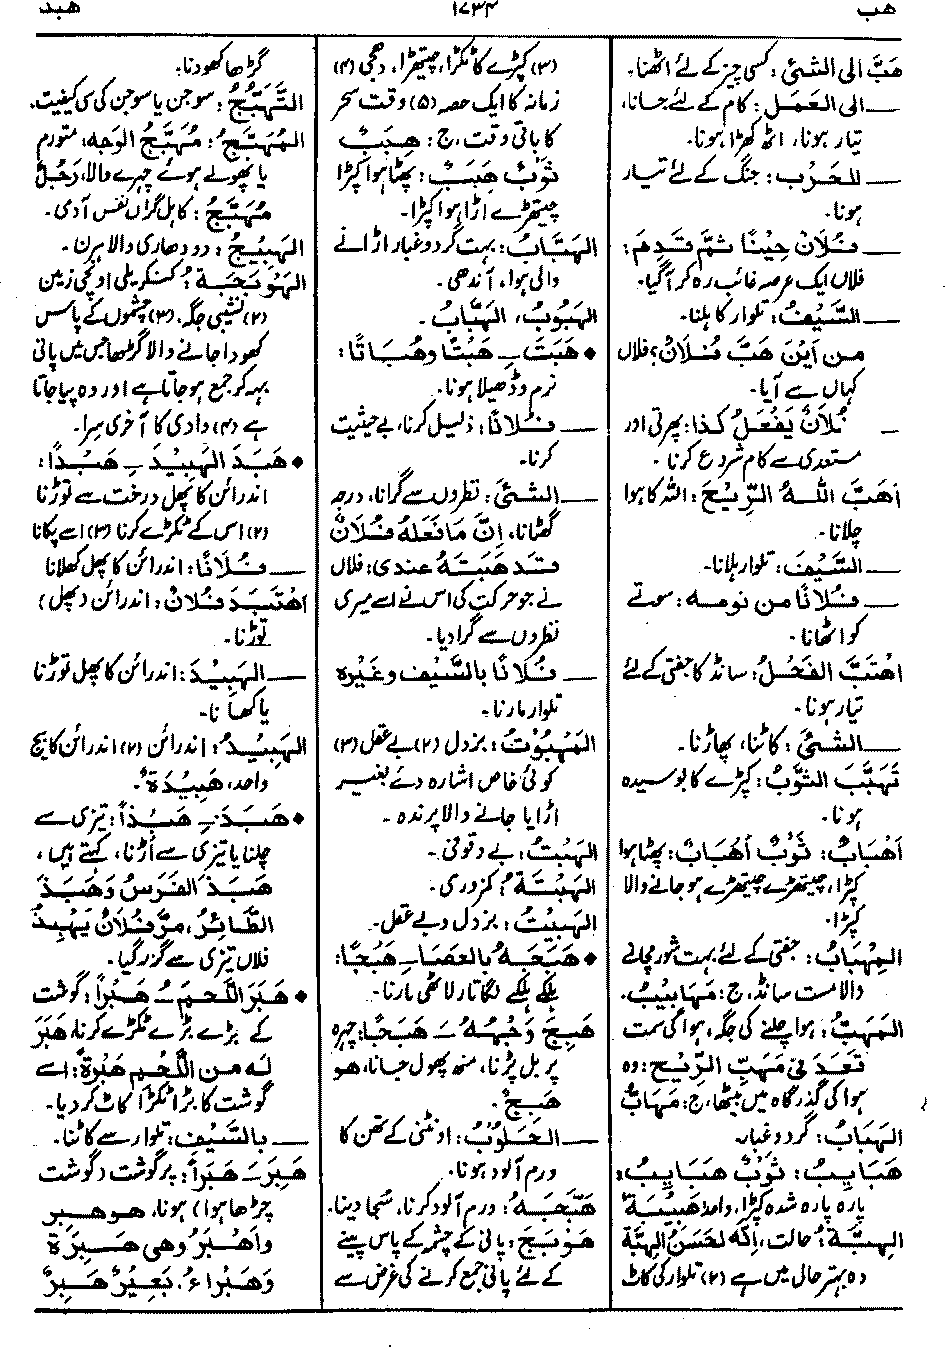 هب
١٧٣٤
هبد
هَبَّ الى الشئ: کسی چیز کے لئے اٹھنا۔
ــ الى العَمَل: کام کے لئے جانا،
تیار ہونا، اٹھ کھڑا ہونا۔
ــ للحَرْب: جنگ کے لئے تیار
ہونا۔
ــ فُلَانٌ حِيْنًا ثُمَّ قَدِمَ:
فلاں ایک عرصہ غائب رہ کر آگیا۔
ــ السَّيْفُ: تلوار کا ہلنا۔
مِن اَيْنَ هَبَّ فُلَانٌ؟ فلاں
کہاں سے آیا۔
ــ فُلَانٌ يَفْعَلُ كذا: پھرتی اور
مستعدی سے کام شروع کرنا۔
اَهَبَّ اللهُ الرِّيْحَ: اللہ کا ہوا
چلانا۔
ــ السَّيْفَ: تلوار ہلانا۔
ــ فُلَانًا من نومه: سوتے
کو اٹھانا۔
اهْتَبَّ الفَحْلُ: سانڈ کا جفتی کے لئے
تیار ہونا۔
ــ الشئَ: کاٹنا، پھاڑنا۔
تَهَبَّبَ الثَّوْبُ: کپڑے کا بوسیدہ
ہونا۔
اَهْبَابٌ: ثَوْبٌ أَهْبَابٌ: پھٹا ہوا
کپڑا، چیتھڑے چیتھڑے ہو جانے والا
کپڑا۔
المِهْبَابُ: جفتی کے لئے بہت شور مچانے
والا مست سانڈ، ج: مَهَابِيْبُ۔
المَهَبُّ: ہوا چلنے کی جگہ، ہوا کی سمت
قَعَدَ فی مَهَبِّ الرِّيْحِ: وہ
ہوا کی گذرگاہ میں بیٹھا، ج: مَهَابُّ
الهَبَابُ: گردوغبار۔
هَبَايِبُ: ثَوْبٌ هَبَايِبُ:
پارہ پارہ شدہ کپڑا، واحد هَبِيْبَةٌ
الهِبَّةُ: حالت، اِنَّهٗ لَحَسَنُ الهِبَّةِ
وہ بہتر حالی میں ہے (۲) تلوار کی کاٹ
(۳) کپڑے کا ٹکڑا، چیتھڑا، دھجی (۴)
زمانہ کا ایک حصہ (۵) وقت سحر
کا باقی وقت، ج: هِبَبٌ
ثَوْبٌ هِبَبٌ: پھٹا ہوا کپڑا
چیتھڑے اڑا ہوا کپڑا۔
الهَبَّابُ: بہت گردوغبار اڑانے
والی ہوا، آندھی۔
الهَبُوْبُ، الهَبَّابُ۔
• هَبَتَ ــِ هَبْتًا وهُبَاتًا:
نرم و ڈھیلا ہونا۔
ــ فُلَانًا: ذلیل کرنا، بے حیثیت
کرنا۔
ــ الشئَ: نظروں سے گرانا، درجہ
گھٹانا، اِنَّ مَا فَعَلَهُ فُلَانٌ
قَد هَبَتَهُ عندی: فلاں
نے جو حرکت کی اس نے اسے میری
نظروں سے گرادیا۔
ــ فُلَانًا بِالسَّيْفِ وغَيْرِهٖ
تلوار مارنا۔
المَهْبُوْتُ: بزدل (۲) بے عقل (۳)
کوئی خاص اشارہ دئے بغیر
اڑایا جانے والا پرندہ۔
الهَبْتُ: بے وقوفی۔
الهَبْتَةُ: کمزوری۔
الهَبِيْتُ: بزدل و بے عقل۔
• هَبَجَهٗ بالعصا ــِ هَبْجًا:
ہلکے ہلکے لگاتار لاٹھی مارنا۔
هَبِجَ وَجْهُهٗ ــَ هَبَجًا: چہرہ
پر بل پڑنا، منہ پھول جانا، هو
هَبِجٌ۔
ــ الحَلُوْبُ: اونٹنی کے تھن کا
ورم آلود ہونا۔
هَبَّجَهٗ: ورم آلود کرنا، سُجا دینا۔
هَوْبَجَ: پانی کے چشمہ کے پاس پینے
کے لئے پانی جمع کرنے کی غرض سے
گڑھا کھودنا۔
التَّهَبُّجُ: سوجن یا سوجن کی سی کیفیت۔
المُهَبَّجُ: مُهَبَّجُ الوَجه: متورم
یا پھولے ہوئے چہرے والا، رَجُلٌ
مُهَبَّجٌ: کاہل گراں نفس آدمی۔
الهَبِيْجُ: دو دھاری والا ہرن۔
الهَوْبَجَةُ: کنکریلی اونچی زمین
(۲) نشیبی جگہ، (۳) چشموں کے پاس
کھودا جانے والا گڑھا جس میں پانی
بہہ کر جمع ہو جاتا ہے اور وہ پیا جاتا
ہے (۴) وادی کا آخری سِرا۔
• هَبَدَ الهَبِيْدَ ــِ هَبْدًا:
اندرائن کا پھل درخت سے توڑنا
(۲) اس کے ٹکڑے کرنا (۳) اسے پکانا
ــ فُلَانًا: اندرائن کا پھل کھلانا
اهْتَبَدَ فُلَانٌ: اندرائن (پھل)
توڑنا۔
ــ الهَبِيْدَ: اندرائن کا پھل توڑنا
یا کھانا۔
الهَبِيْدُ: اندرائن (۲) اندرائن کا بیج
واحد، هَبِيْدَةٌ۔
• هَبَذَ ــِ هَبْذًا: تیزی سے
چلنا یا تیزی سے اُڑنا، کہتے ہیں،
هَبَذَ الفَرَسُ وَهَبَذَ
الطَّائِرُ، مَرَّ فُلَانٌ يَهْبِذُ
فلاں تیزی سے گزر گیا۔
• هَبَرَ اللَّحمَ ــُ هَبْراً: گوشت
کے بڑے بڑے ٹکڑے کرنا، هَبَرَ
لَهٗ مِن اللَّحْمِ هَبْرَةً: اسے
گوشت کا بڑا ٹکڑا کاٹ کر دیا۔
ــ بِالسَّيْفِ: تلوار سے کاٹنا۔
هَبِرَ ــَ هَبَراً: پر گوشت (گوشت
چڑھا ہوا) ہونا، هو هَبِر
وأَهْبَرُ وهی هَبِرَةٌ
وَهَبْراءُ، بَعِيْرٌ هَبِرٌ